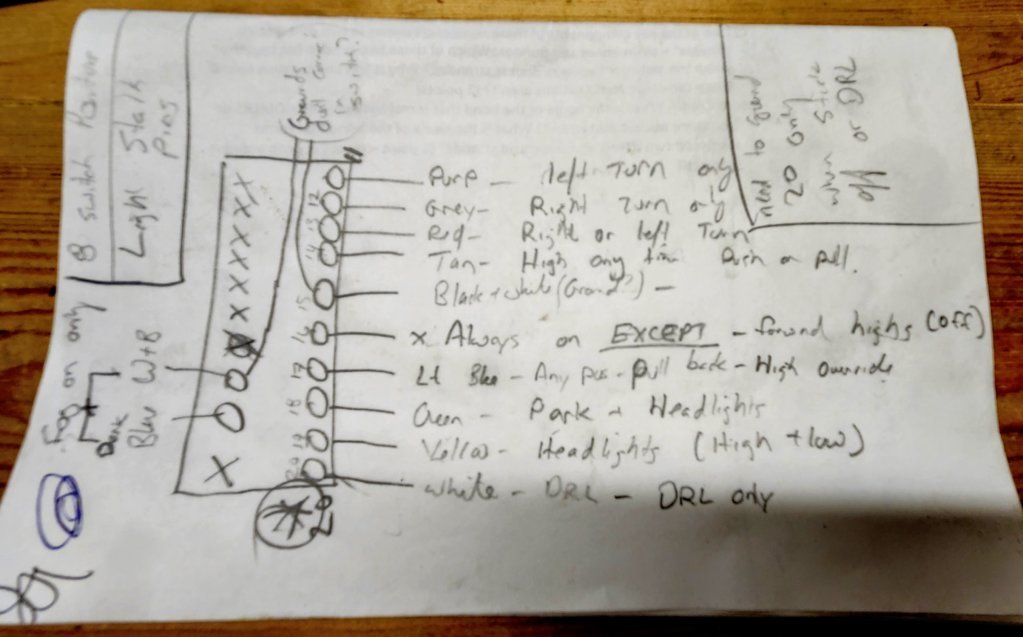 B switch Pinture
Light Stalk
Pins
Grounds
all Came
in
switch?
need to Ground
20 only
when stick
off or DRL
X X X X X X
11
12
13
14
15
16
17
18
19
20
Purp - left Turn only
Grey - Right Turn only
Red - Right or left Turn
Tan - High any time Push or pull.
Black + white (Ground?) -
x Always on EXCEPT - forward highs (off)
Lt Blue - Any pos - pull back - High override
Green - Park + Headlights
Yellow - Headlights (High + low)
white - DRL - DRL only
Fog on only
W+B
Dark
Blue
X
20